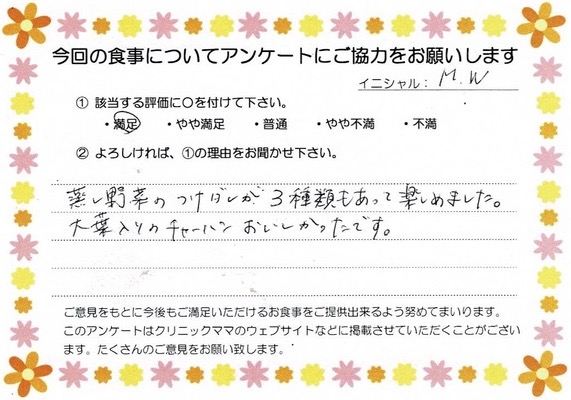 今回の食事についてアンケートにご協力をお願いします
イニシャル： M.W
① 該当する評価に〇を付けて下さい。
・満足 ・やや満足 ・普通 ・やや不満 ・不満
② よろしければ、①の理由をお聞かせ下さい。
蒸し野菜のつけだしが3種類もあって楽しめました。
大葉入りのチャーハンおいしかったです。
ご意見をもとに今後もご満足いただけるお食事をご提供出来るよう努めてまいります。
このアンケートはクリニックママのウェブサイトなどに掲載させていただくことがござい
ます。たくさんのご意見をお願い致します。